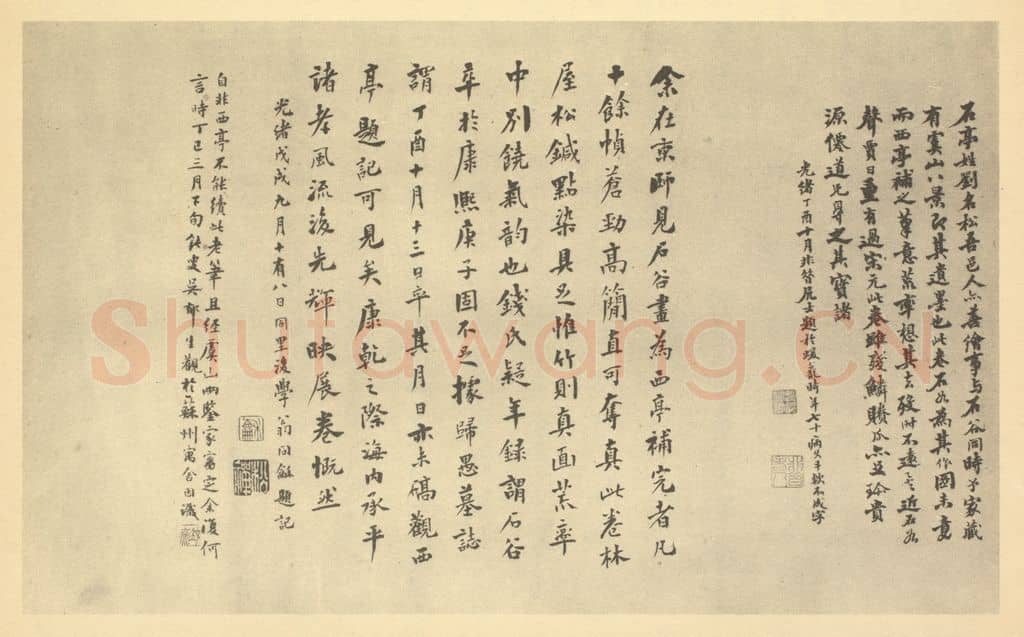 石亭姓劉名松吾邑人亦善繪事与石谷同時予家藏
有虞山八景即其遺墨也此卷石谷為其作圖未竟
而西亭補之草意荒率想其去發時不遠之近石谷
聲賈日重有過宋元此卷雖殘鱗賸爪亦足珍貴
源僊道兄得之其寶諸
光緒丁酉十月非昔居士題於時年七十病久手欵不成字
余在京師見石谷畫為西亭補完者凡
十餘幀蒼勁高簡直可奪真此卷林
屋松鍼點染具足惟竹則真面荒率
中別饒氣韵也錢氏疑年録謂石谷
卒於康熙庚子固不足據歸愚墓誌
謂丁酉十月十三日卒其月日亦未碻觀西
亭題記可見矣康乾之際海内承平
諸老風流後先輝映展卷慨然
光緒戊戌九月十有八日同里後學翁同龢題記
自非西亭不能續此老筆且经虞山兩鑒家審定余復何
言時丁巳三月下旬鈍叟吴郁生觀於蘇州寓舍因識
Shufawang.CN